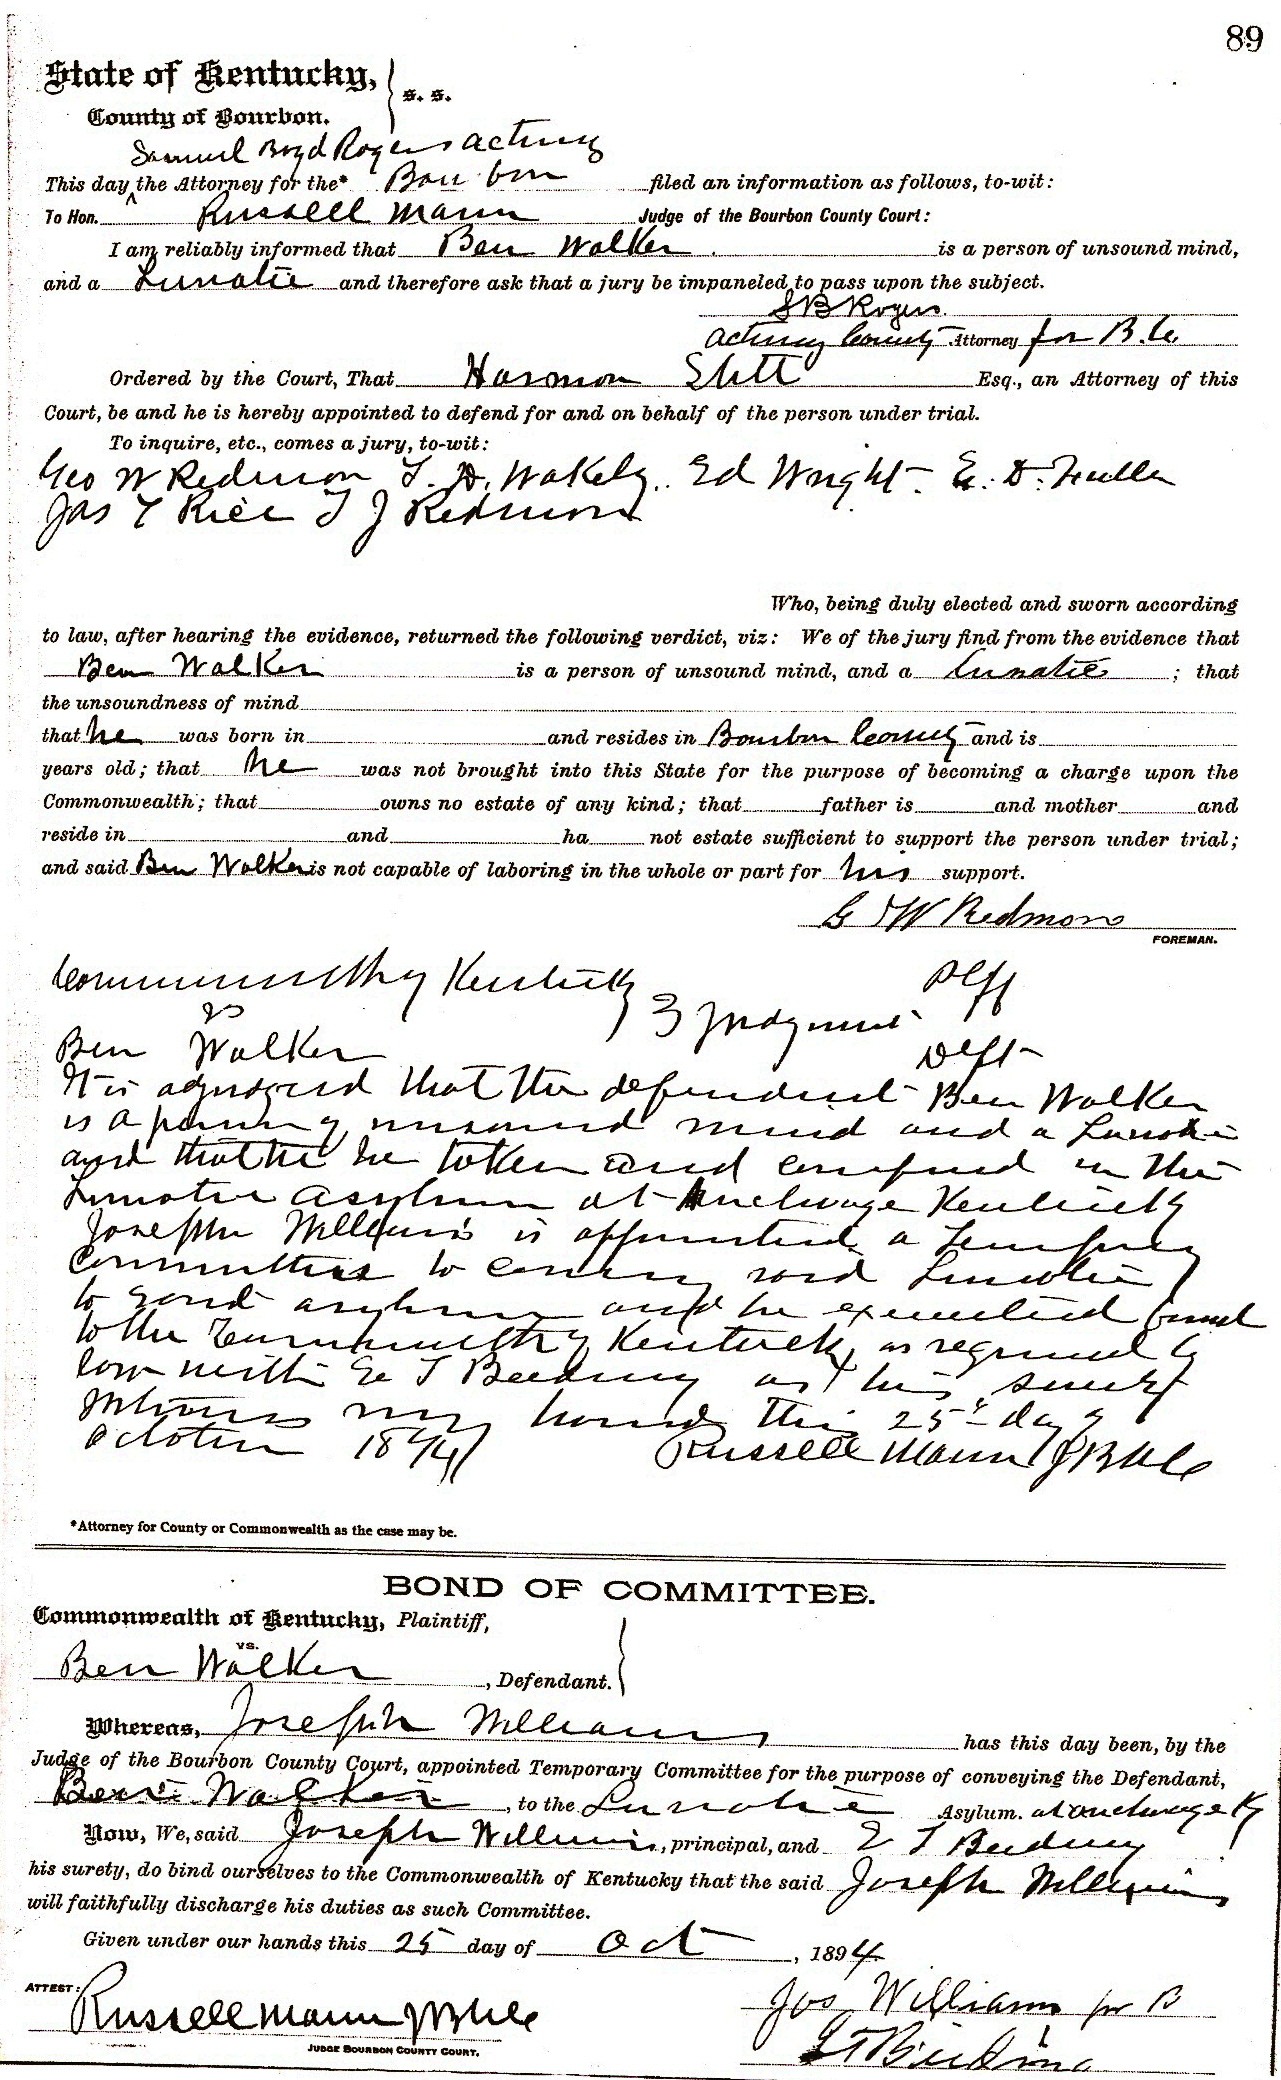 89
State of Kentucky, } s. s.
County of Bourbon.
Samuel Boyd Rogers acting
This day ^ the Attorney for the* Bourbon filed an information as follows, to-wit:
To Hon. Russell Mann Judge of the Bourbon County Court:
I am reliably informed that Ben Walker is a person of unsound mind,
and a Lunatic and therefore ask that a jury be impaneled to pass upon the subject.
S B Rogers
acting County Attorney for B. C.
Ordered by the Court, That Harmon Stitt Esq., an Attorney of this
Court, be and he is hereby appointed to defend for and on behalf of the person under trial.
To inquire, etc., comes a jury, to-wit:
Geo W Redmon T. H. Wakely. Ed Wright E. D. Fuller
Jas T Rice T J Redmon
Who, being duly elected and sworn according
to law, after hearing the evidence, returned the following verdict, viz: We of the jury find from the evidence that
Ben Walker is a person of unsound mind, and a Lunatic ; that
the unsoundness of mind
that he was born in and resides in Bourbon County and is
years old; that he was not brought into this State for the purpose of becoming a charge upon the
Commonwealth; that owns no estate of any kind; that father is and mother and
reside in and ha not estate sufficient to support the person under trial;
and said Ben Walker is not capable of laboring in the whole or part for his support.
G W Redmon
FOREMAN.
Commonwealth of Kentucky Plff
vs } Judgment
Ben Walker Deft
It is adjudged that the defendant Ben Walker
is a person of unsound mind and a Lunatic
and that he be taken and confined in the
Lunatic Asylum at Anchorage Kentucky
Joseph Williams is appointed a Temporary
Committee to convey said Lunatic
to said asylum and he executed bond
to the Commonwealth of Kentucky as required by
law with E T Beeding as his surety
Witness my hand this 25th day of
October 1894 Russell Mann J B C C
*Attorney for County or Commonwealth as the case may be.
BOND OF COMMITTEE.
Commonwealth of Kentucky, Plaintiff,
vs.
Ben Walker , Defendant. }
Whereas, Joseph Williams has this day been, by the
Judge of the Bourbon County Court, appointed Temporary Committee for the purpose of conveying the Defendant,
Ben Walker , to the Lunatic Asylum. at Anchorage Ky
Now, We, said Joseph Williams , principal, and E T Beeding
his surety, do bind ourselves to the Commonwealth of Kentucky that the said Joseph Williams
will faithfully discharge his duties as such Committee.
Given under our hands this 25 day of Oct , 1894
ATTEST: Jos Williams for B
Russell Mann J B C C
JUDGE BOURBON COUNTY COURT.
E T Beeding